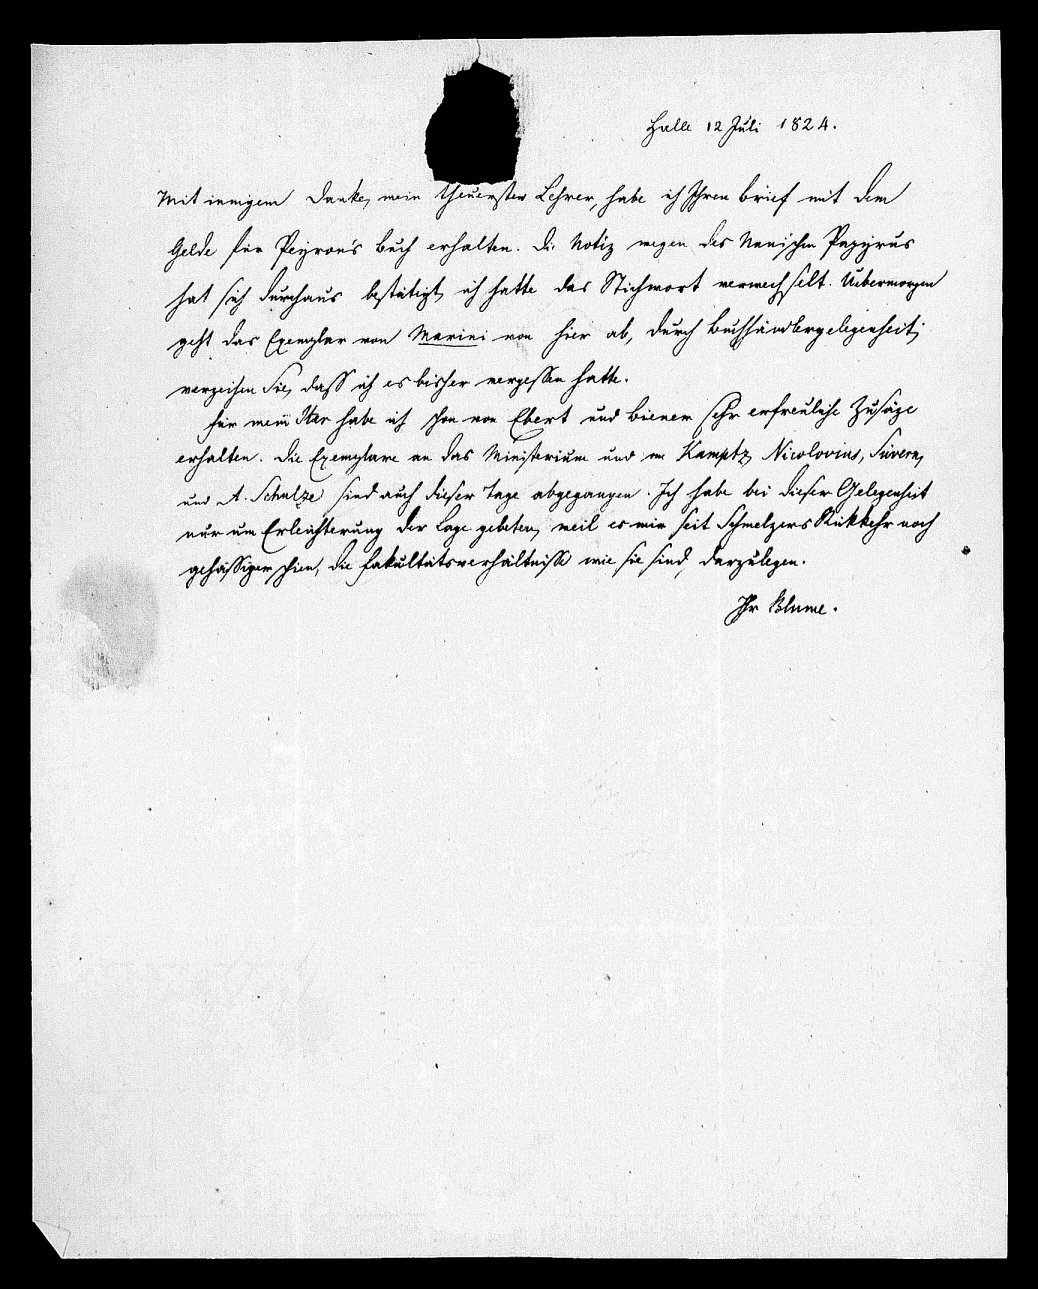 Halle 12 Juli 1824.
Mit innigem Danke, mein theuerster Lehrer, habe ich Ihren Brief mit dem
Gelde für Peyron's Buch erhalten. Die Notiz wegen des Nanischen Papyrus
hat sich durchaus bestätigt, ich hatte das Stichwort verwechselt. Uebermorgen
geht das Exemplar von Marini von hier ab, durch Buchhändlergelegenheit;
verzeihen Sie, dass ich es bisher vergessen hatte.
Für mein Iter habe ich schon von Ebert und Biener sehr erfreuliche Zusäze
erhalten. Die Exemplare an das Ministerium und an Kamptz, Nicolovius, Süvern,
und A. Schulze sind auch dieser Tage abgegangen. Ich habe bei dieser Gelegenheit
nur um Erleichterung der Lage gebeten, weil es mir seit Schmelzers Rükkehr noch
gehässiger schien, die Fakultätsverhältnisse wie sie sind, darzulegen.
Ihr Blume.